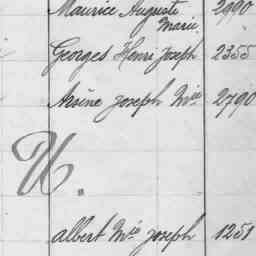 Maurice Auguste 2990
Marie
Georges Henri Joseph 2355
Arsène Joseph Mie 2790
U.
Albert Mie Joseph 1251